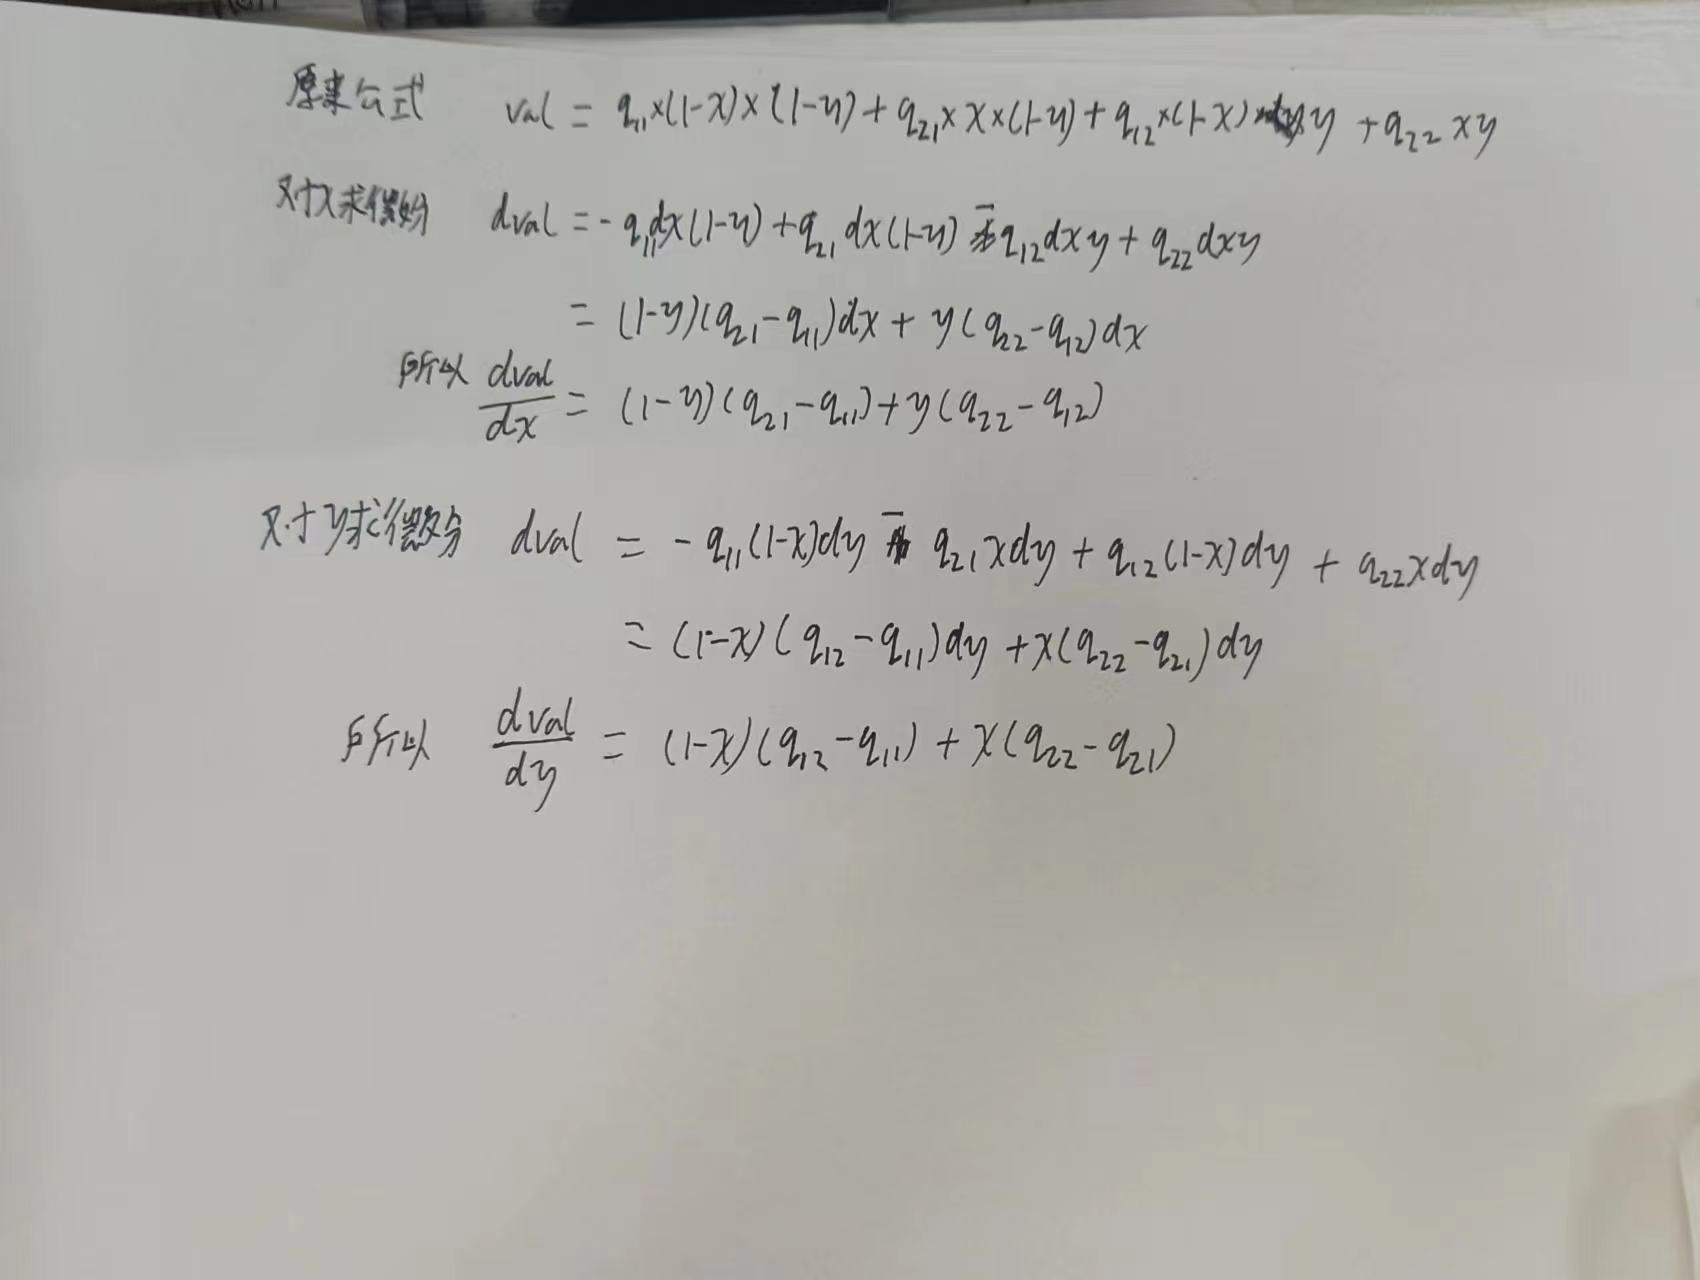 原来公式 val = q₁₁×(1-x)×(1-y)+q₂₁×x×(1-y)+q₁₂×(1-x)×y+q₂₂xy
对x求微分 dval = -q₁₁dx(1-y)+q₂₁dx(1-y)-q₁₂dxy+q₂₂dxy
= (1-y)(q₂₁-q₁₁)dx+y(q₂₂-q₁₂)dx
所以 dval/dx = (1-y)(q₂₁-q₁₁)+y(q₂₂-q₁₂)
对y求微分 dval = -q₁₁(1-x)dy-q₂₁xdy+q₁₂(1-x)dy+q₂₂xdy
= (1-x)(q₁₂-q₁₁)dy+x(q₂₂-q₂₁)dy
所以 dval/dy = (1-x)(q₁₂-q₁₁)+x(q₂₂-q₂₁)